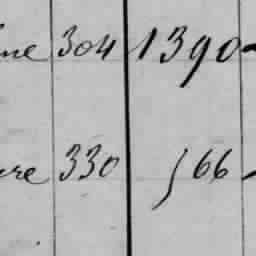 me 304 1390
ure 330 566